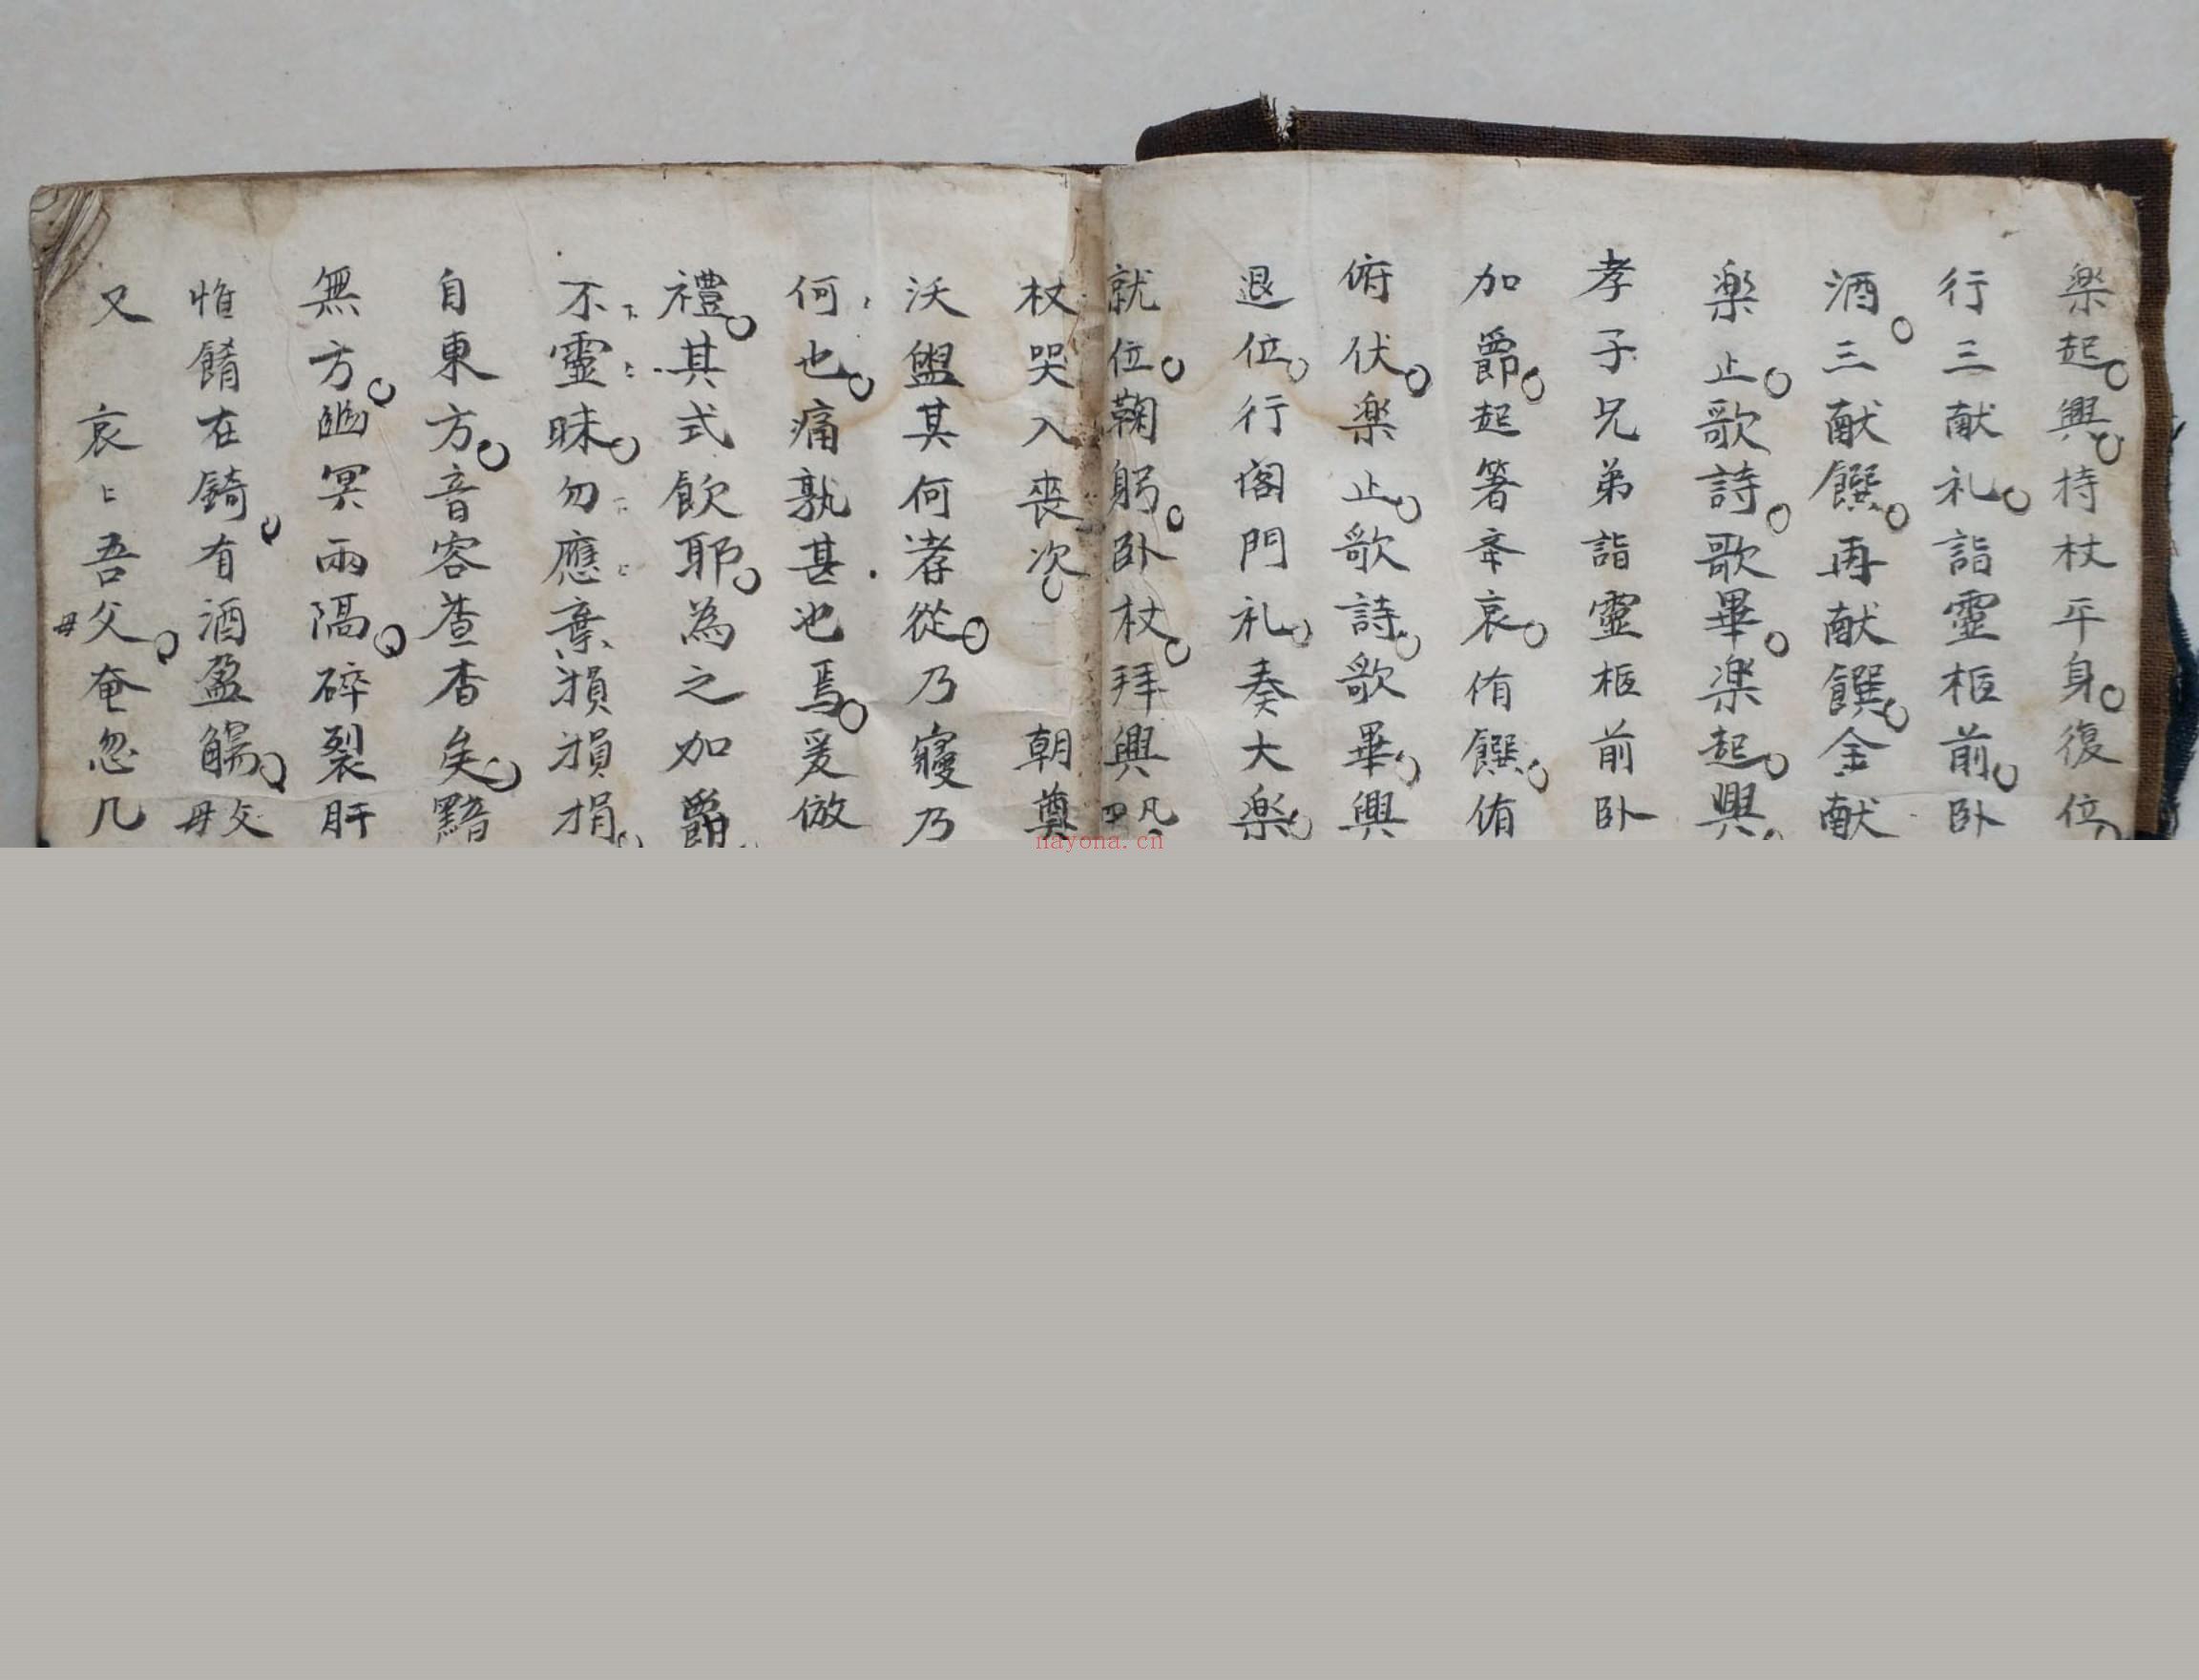 楽起興持杖平身復位
行三献礼詣靈柩前卧
酒三献饌再献饌金献
楽止歌詩歌畢楽起興
孝子兄弟詣靈柩前卧
加爵起箸举哀侑饌侑
俯伏楽止歌詩歌畢興
退位行阁門礼奏大楽
就位鞠躬卧杖拜興凡四
杖哭入喪次 朝奠
沃盥其何孝從乃寢乃
何也痛孰甚也焉爰倣
禮其式飲耶為之加爵
不靈昧勿應棄損損捐
自東方音容杳矣黯
無方幽冥兩隔碎裂肝
惟餚在錡有酒盈觴父母
又 哀〻吾父母奄忽几
nayona.cn